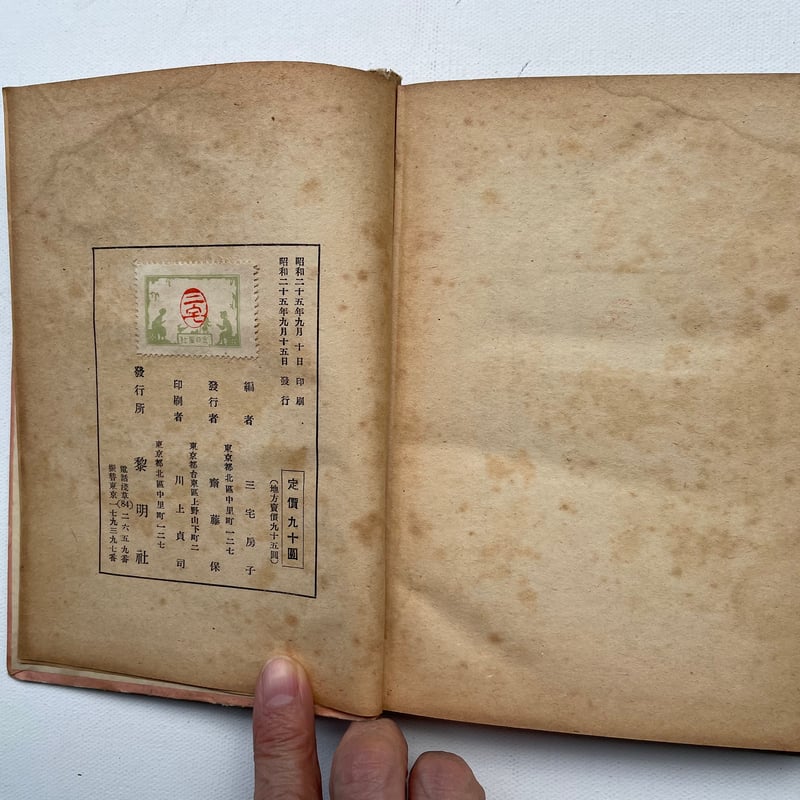 昭和二十五年九月 十日 印刷
昭和二十五年九月十五日 發行
定價九十圓
(地方賣價九十五圓)
編者 三宅房子
東京都北區中里町一二七
發行者 齋藤保
東京都台東區上野山下町二
印刷者 川上貞司
東京都北區中里町一二七
發行所 黎明社
電話淺草(84)二六五九番
振替東京一七九三九七番
三宅